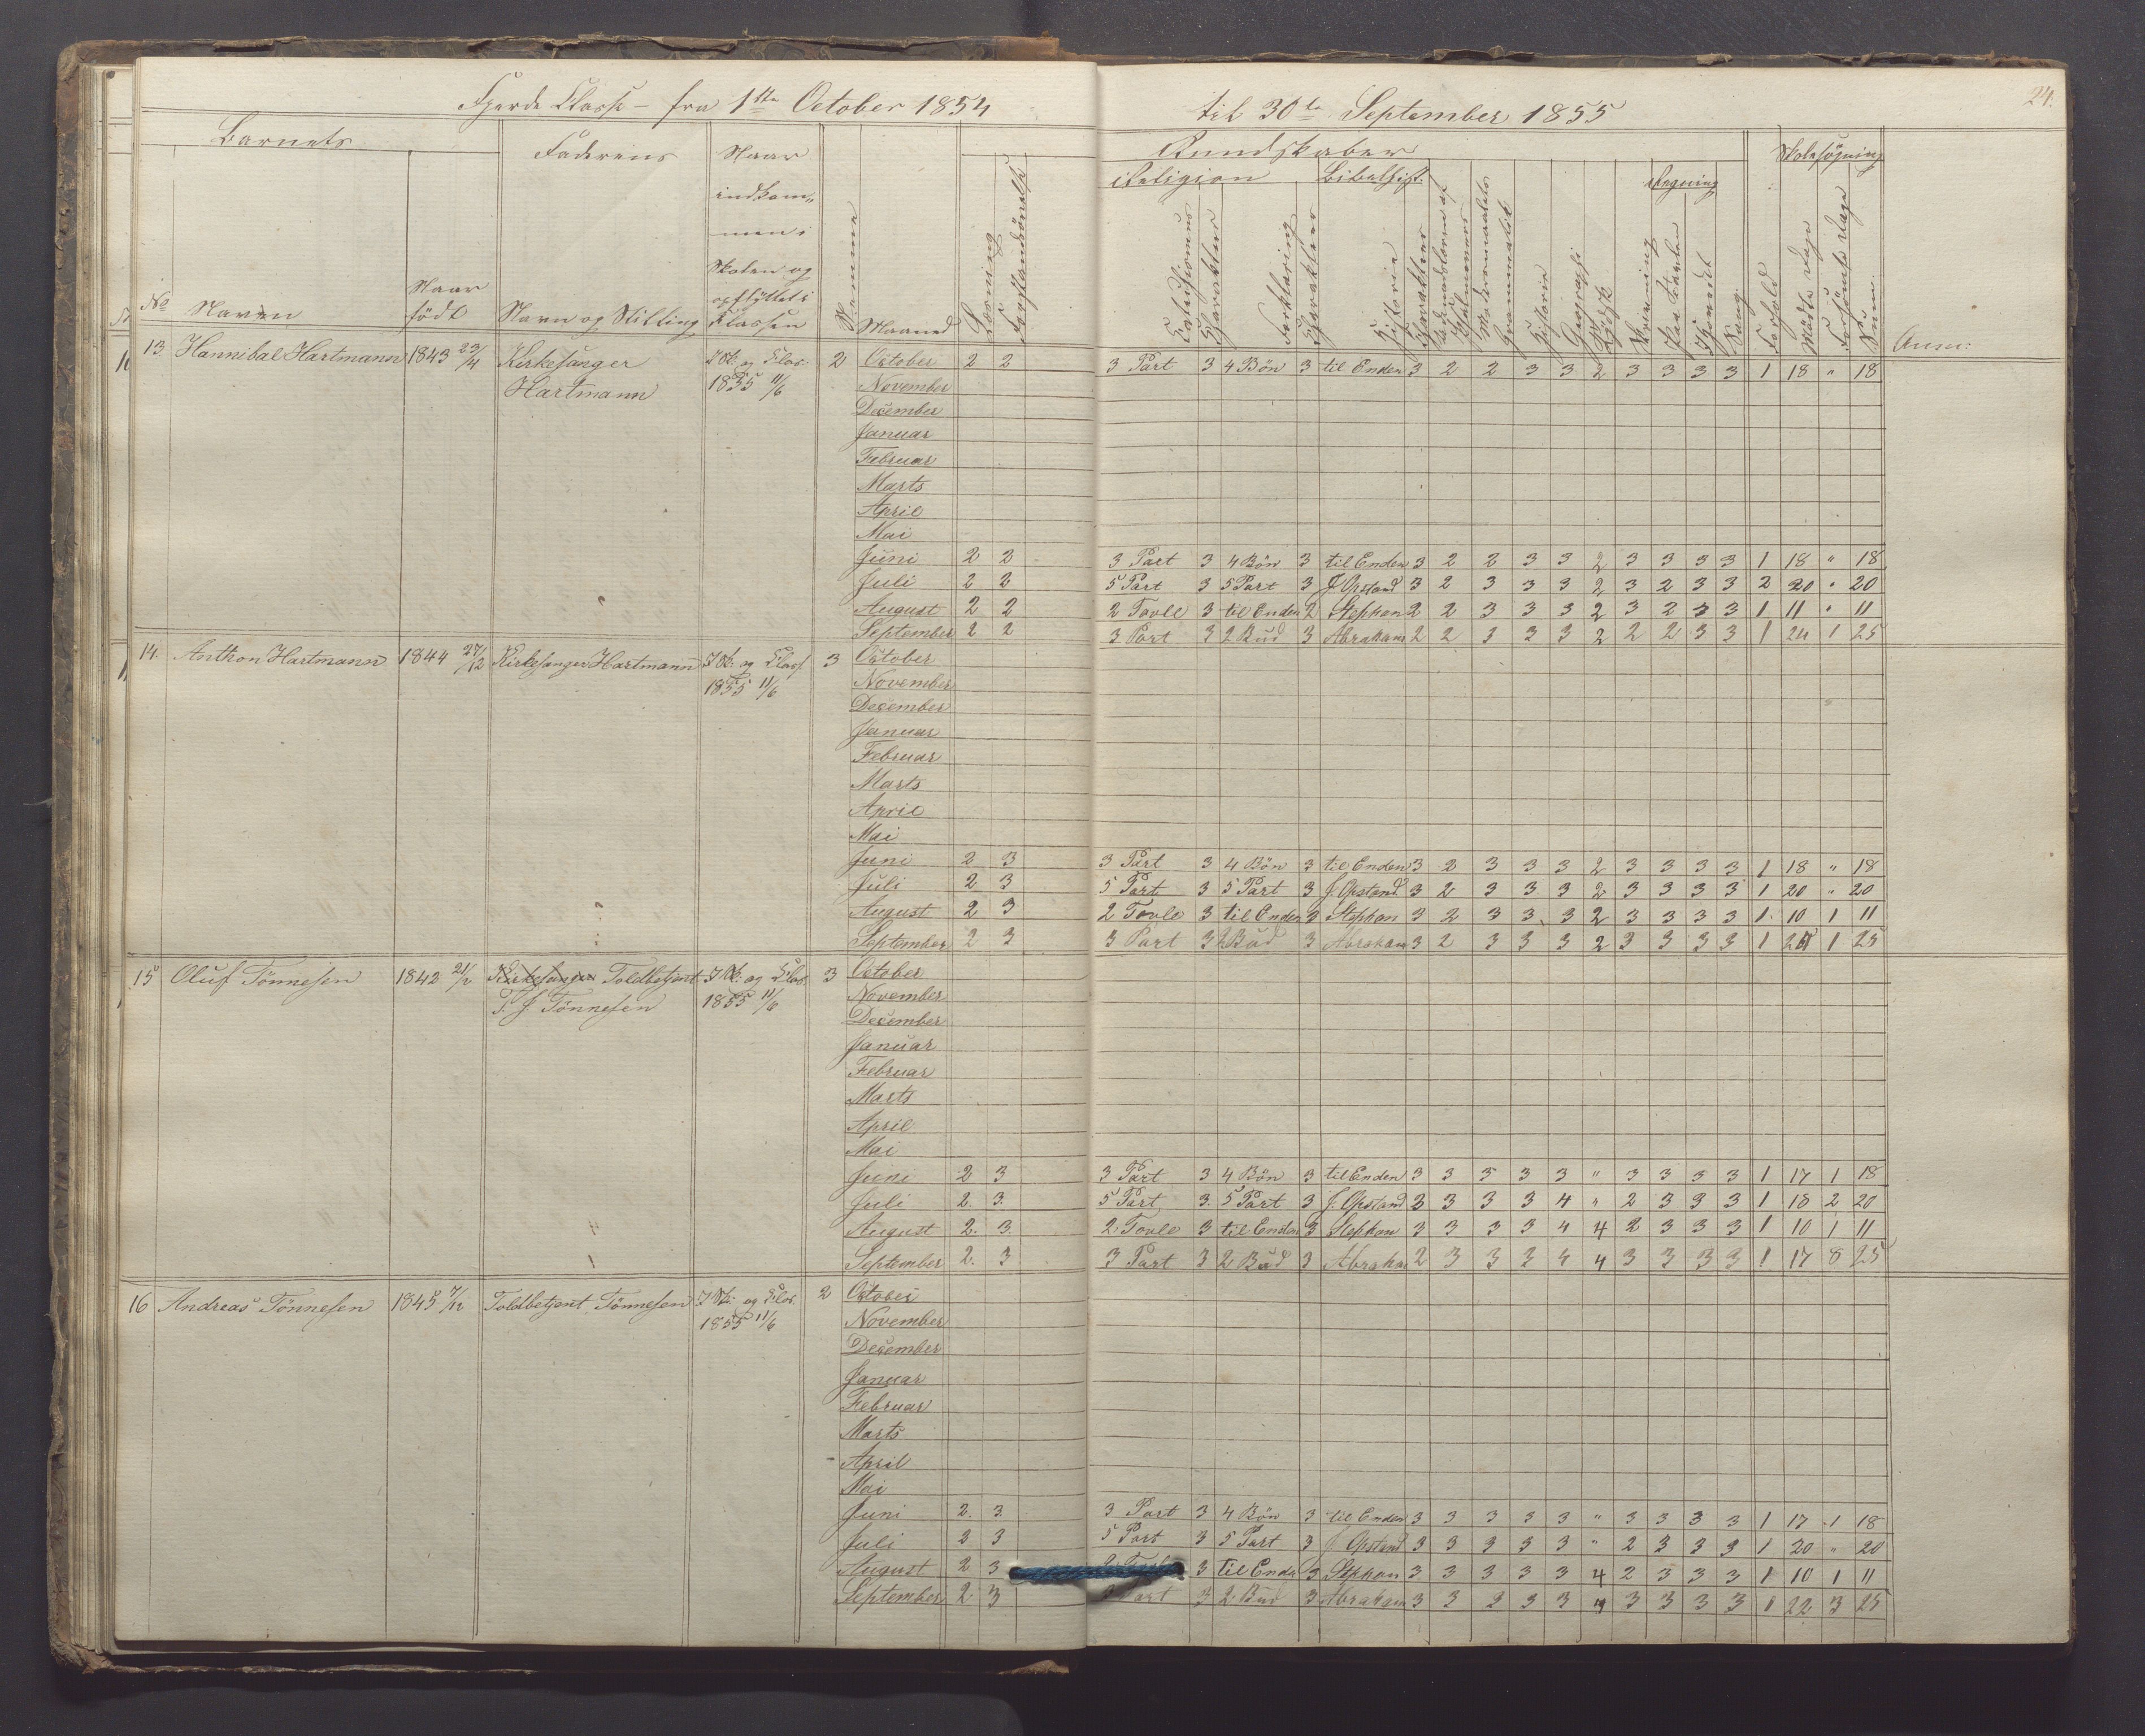 Fjerde Classe – fra 1ste October 1854 til 30te September 1855
24.
Barnets
Faderens
Naar indkommen i Skolen og opflyttet i Klassen
Kundskaber
Skolesøgning
Religion
Bibelhist.
Regning
No
Navn
Naar født
Navn og Stilling
Maaned
Forklaring
Historie
Grammatik
Historie
Geographi
Skrivning
Sang
Forhold
Mødte Dage
Forsømte Dage
Sum
Anm:
13. Hannibal Hartmann 1843 23/4 Kirkesanger 2 October 2 2 3 Part 3 4 Bön 3 til Enden 3 2 2 3 3 2 3 3 3 3 1 18 " 18
Hartmann 1855 11/6 November
December
Januar
Februar
Marts
April
Mai
Juni 2 2 3 Part 3 4 Bön 3 til Enden 3 2 2 3 3 2 3 3 3 3 1 18 " 18
Juli 2 2 5 Part 3 5 Part 3 J. Opstand 3 2 3 3 3 2 3 2 3 3 2 20 " 20
August 2 2 2 Tavle 3 til Enden 2 Stephan 2 2 3 3 3 2 3 2 3 3 1 11 " 11
September 2 2 3 Part 3 2 Bud 3 Abraham 2 2 3 3 3 2 2 2 3 3 1 24 1 25
14. Anthon Hartmann 1844 27/12 Kirkesanger Hartmann 3 October
1855 11/6 November
December
Januar
Februar
Marts
April
Mai
Juni 2 3 3 Part 3 4 Bön 3 til Enden 3 2 3 3 3 2 3 3 3 3 1 18 " 18
Juli 2 3 5 Part 3 5 Part 3 J. Opstand 3 2 3 3 3 2 3 3 3 3 1 20 " 20
August 2 3 2 Tavle 3 til Enden 3 Stephan 3 2 3 3 3 2 3 3 3 3 1 10 1 11
September 2 3 3 Part 3 2 Bud 3 Abraham 3 2 3 3 3 2 3 3 3 3 1 24 1 25
15 Oluf Tönnesen 1842 21/2 Kirkesanger Toldbetjent 3 October
T. J. Tönnesen 1855 11/6 November
December
Januar
Februar
Marts
April
Mai
Juni 2 3 3 Part 3 4 Bön 3 til Enden 3 3 3 3 3 " 3 3 3 3 1 17 1 18
Juli 2. 3. 5 Part 3. 5 Part 3 J. Opstand 3 3 3 3 4 " 2 3 3 3 1 18 2 20
August 2. 3. 2 Tavle 3 til Enden 3 Stephan 3 3 3 3 4 4 2 3 3 3 1 10 1 11
September 2. 3 3 Part 3 2 Bud 3 Abraham 2 3 3 3 4 4 3 3 3 3 1 17 8 25
16 Andreas Tönnesen 1845 7/12 Toldbetjent Tönnesen 2 October
1855 11/6 November
December
Januar
Februar
Marts
April
Mai
Juni 2. 3. 3 Part 3 4 Bön 3 til Enden 3 3 3 3 3 " 3 3 3 3 1 17 1 18
Juli 2 3 5 Part 3 5 Part 3 J. Opstand 3 3 3 3 3 " 2 3 3 3 1 20 " 20
August 2 3 2 3 til Enden 3 Stephan 3 3 3 3 3 4 2 3 3 3 1 10 1 11
September 2 3 3 Part 3 2 Bud 3 Abraham 3 3 2 3 3 4 3 3 3 3 1 22 3 25